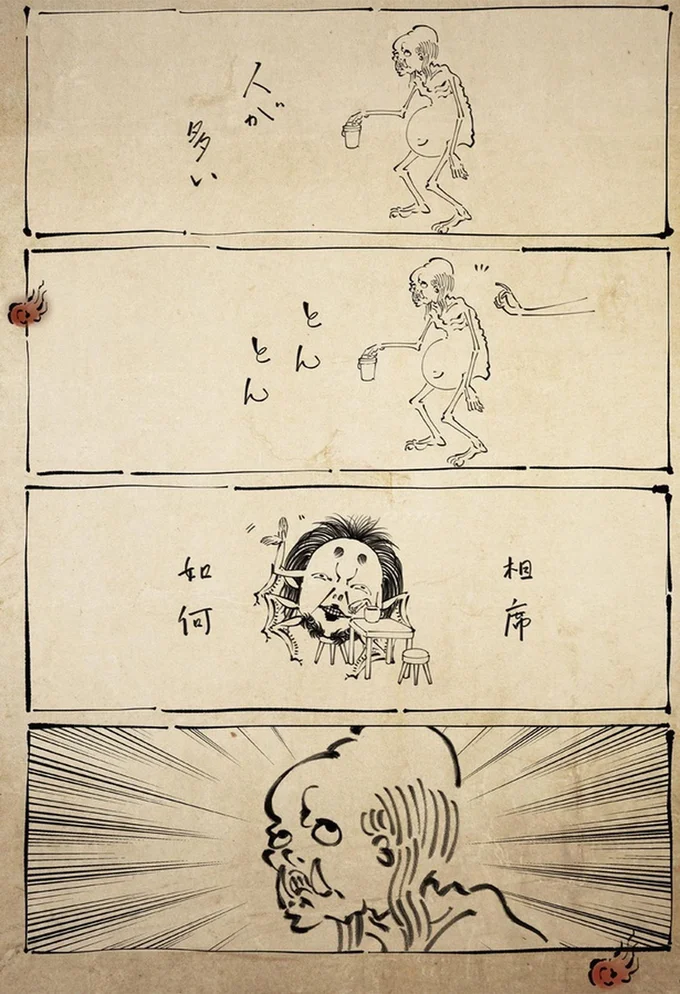 人が
多い
とん
とん
相席
如何